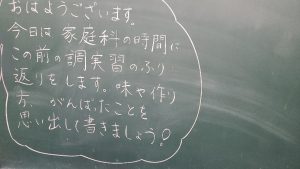 おはようございます。
今日は 家庭科の時間に
この前の調実習のふり
返りをします。味や作り
方、がんばったことを
思い出して書きましょう?